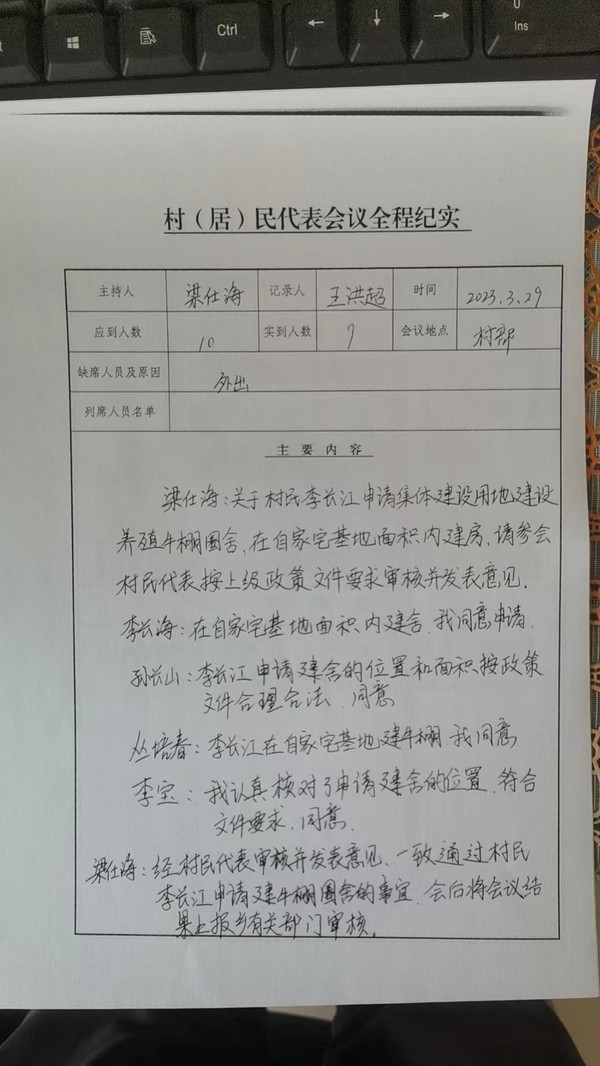 Ctrl
0
Ins
村（居）民代表会议全程纪实
主持人 梁仕海 记录人 王洪超 时间 2023.3.29
应到人数 10 实到人数 7 会议地点 村部
缺席人员及原因 外出
列席人员名单
主要内容
梁仕海：关于村民李长江申请集体建设用地建设
养殖牛棚圈舍，在自家宅基地面积内建房，请参会
村民代表按上级政策文件要求审核并发表意见．
李长海：在自家宅基地面积内建舍，我同意申请．
孙长山：李长江申请建舍的位置和面积按政策
文件合理合法，同意
丛培春：李长江在自家宅基地建牛棚 我同意
李宝：我认真核对了申请建舍的位置，符合
文件要求，同意．
梁仕海：经村民代表审核并发表意见，一致通过村民
李长江申请建牛棚圈舍的事宜，会后将会议结
果上报乡有关部门审核．